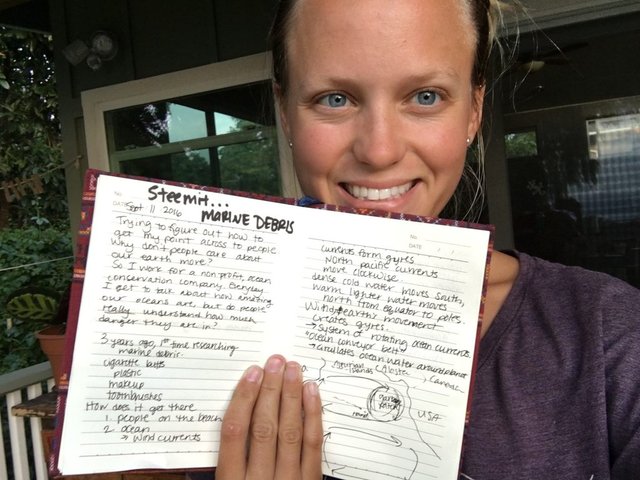 No.
DATE Sept 11 2016
Steemit...
MARINE DEBRIS
Trying to figure out how to
get my point across to people
Why don't people care about
our earth more?
So I work for a nonprofit, ocean
conservation company. Everyday
I get to talk about how amazing
our oceans are, but do people
really understand how much
danger they are in?
3 years ago, 1st time researching
marine debris.
cigarette butts
plastic
makeup
toothbrushes
How does it get there
1. people on the beach
2. ocean
→ wind currents
No
DATE / /
currents form gyres
North pacific currents
move clockwise.
dense cold water moves south,
warm lighter water moves
north from equator to poles.
Wind & earth's movement
creates gyres.
→ system of rotating ocean currents
→ ocean conveyor belt
→ circulates ocean water around planet
Islands
Canada
garbage
patch
USA